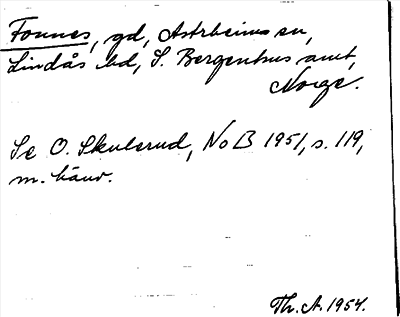 Fonnes, gd, Astrheims sn,
Lindås hd, S. Bergenhus amt,
Norge.
Se O. Skulerud, NoB 1951, s. 119,
m. hänv.
Th. A. 1954.